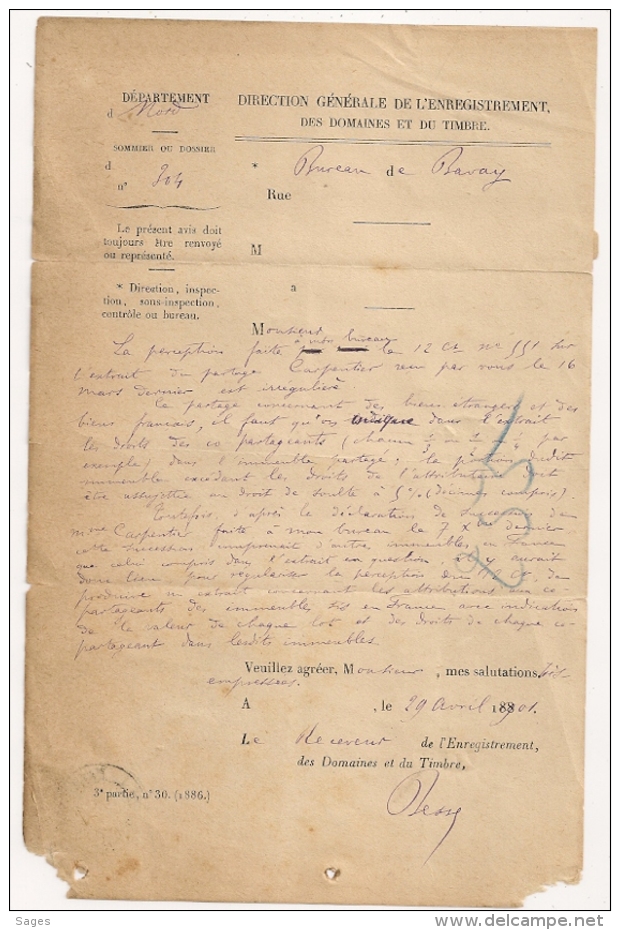 DÉPARTEMENT
d Nord
SOMMIER OU DOSSIER
d
n° 304
Le présent avis doit
toujours être renvoyé
ou représenté.
* Direction, inspec-
tion, sous-inspection,
contrôle ou bureau.
DIRECTION GÉNÉRALE DE L'ENREGISTREMENT,
DES DOMAINES ET DU TIMBRE.
* Bureau de Bavay
Rue
M
a
Monsieur
à mon bureau
La perception faite le 12 Ct n° 551 sur
l'extrait du partage Carpentier reçu par vous le 16
mars dernier est irrégulière
Le partage concernant des biens étrangers et des
biens français, il faut qu'on indique dans l'extrait
les droits des co partageants (chacun par
exemple) dans l'immeuble partagé; la portion dudit
immeuble excédant les droits de l'attributaire doit
être assujettie au droit de soulte à 5% (décimes compris).
Toutefois, d'après la déclaration de succession de
Mme Carpentier faite à mon bureau le 7 Xbre dernier
cette succession comprenait d'autres immeubles en France
que celui compris dans l'extrait en question. Il y aurait
donc lieu pour régulariser la perception du 12 Ct, de
produire un extrait concernant les attributions aux co-
partageants des immeubles sis en France avec indication
de la valeur de chaque lot et des droits de chaque co-
partageant dans lesdits immeubles.
Veuillez agréer, Monsieur, mes salutations très
empressées.
A , le 29 Avril 1901.
Le Receveur de l'Enregistrement,
des Domaines et du Timbre,
3e partie, n° 30. (1886.)
Sages
delcampe.net